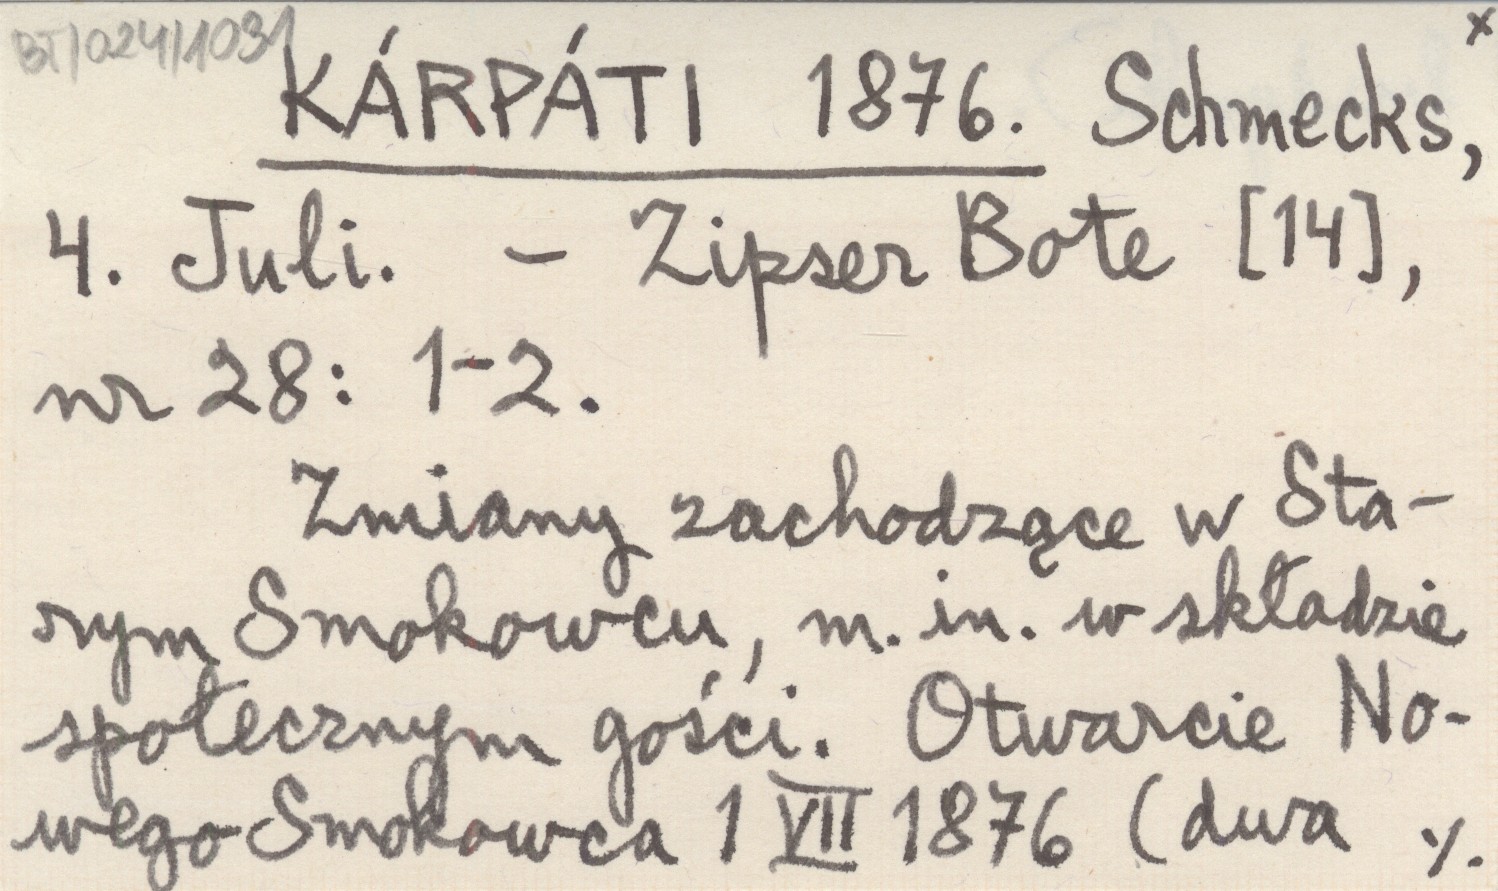 BT/024/1031
x
KÁRPÁTI 1876. Schmecks,
4. Juli. – Zipser Bote [14],
nr 28: 1-2.
Zmiany zachodzące w Sta-
rym Smokowcu, m. in. w składzie
społecznym gości. Otwarcie No-
wego Smokowca 1 VII 1876 (dwa ./.